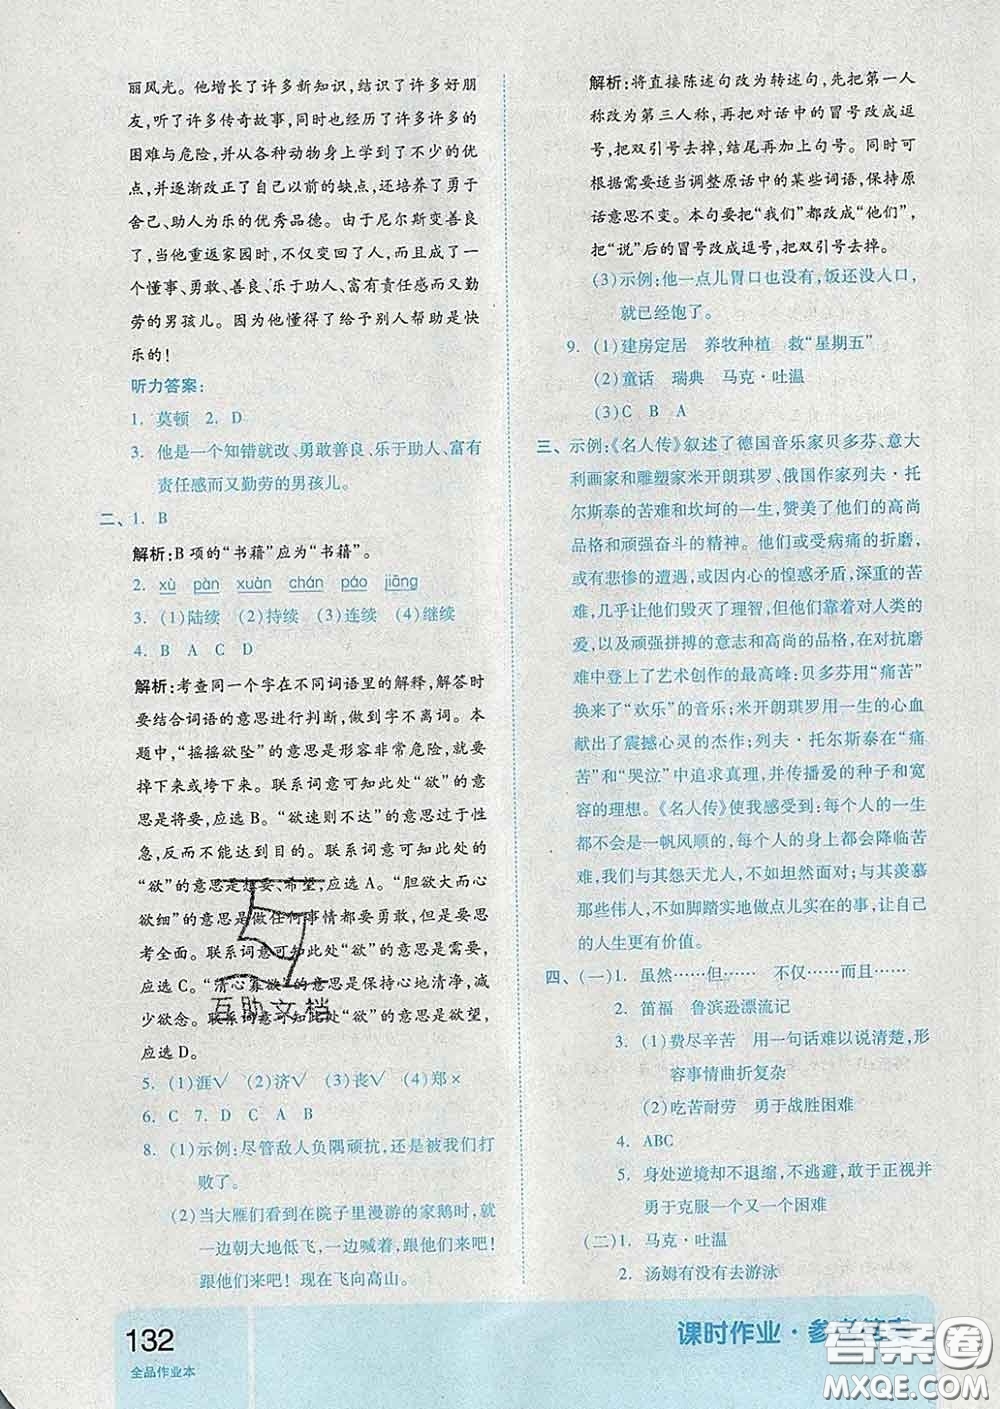 丽风光。他增长了许多新知识,结识了许多好朋
友,听了许多传奇故事,同时也经历了许多许多的
困难与危险,并从各种动物身上学到了不少的优
点,并逐渐改正了自己以前的缺点,还培养了勇于
舍己、助人为乐的优秀品德。由于尼尔斯变善良
了,当他重返家园时,不仅变回了人,而且成了一
个懂事、勇敢、善良、乐于助人、富有责任感而又勤
劳的男孩儿。因为他懂得了给予别人帮助是快
乐的!
听力答案:
1. 莫顿 2. D
3. 他是一个知错就改、勇敢善良、乐于助人、富有
责任感而又勤劳的男孩儿。
二、1. B
解析:B 项的“书藉”应为“书籍”。
2. xù pàn xuàn chán páo jiāng
3. (1)陆续 (2)持续 (3)连续 (4)继续
4. B A C D
解析:考查同一个字在不同词语里的解释,解答时
要结合词语的意思进行判断,做到字不离词。本
题中,“摇摇欲坠”的意思是形容非常危险,就要
掉下来或垮下来。联系词意可知此处“欲”的意
思是将要,应选 B。“欲速则不达”的意思是过于性
急,反而不能达到目的。联系词意可知此处的
“欲”的意思是想要、希望,应选 A。“胆欲大而心
欲细”的意思是做任何事情都要勇敢,但是要思
考全面。联系词意可知此处“欲”的意思是需要,
应选 C。“清心寡欲”的意思是保持心地清净,减
少欲念。联系词意可知此处“欲”的意思是欲望,
应选 D。
5. (1)涯√ (2)济√ (3)丧√ (4)郑×
6. C 7. D C A B
8. (1)示例:尽管敌人负隅顽抗,还是被我们打
败了。
(2)当大雁们看到在院子里漫游的家鹅时,就
一边朝大地低飞,一边喊着,跟我们来吧!
跟他们来吧!现在飞向高山。
132
全品作业本
解析:将直接陈述句改为转述句,先把第一人
称改为第三人称,再把对话中的冒号改成逗
号,把双引号去掉,结尾再加上句号。同时可
根据需要适当调整原话中的某些词语,保持原
话意思不变。本句要把“我们”都改成“他们”,
把“说”后的冒号改成逗号,把双引号去掉。
(3)示例:他一点儿胃口也没有,饭还没入口,
就已经饱了。
9. (1)建房定居 养牧种植 救“星期五”
(2)童话 瑞典 马克·吐温
(3)C B A
三、示例:《名人传》叙述了德国音乐家贝多芬、意大
利画家和雕塑家米开朗琪罗、俄国作家列夫·托
尔斯泰的苦难和坎坷的一生,赞美了他们的高尚
品格和顽强奋斗的精神。他们或受病痛的折磨,
或有悲惨的遭遇,或因内心的惶惑矛盾,深重的苦
难,几乎让他们毁灭了理智,但他们靠着对人类的
爱,以及顽强拼搏的意志和高尚的品格,在对抗磨
难中登上了艺术创作的最高峰:贝多芬用“痛苦”
换来了“欢乐”的音乐;米开朗琪罗用一生的心血
献出了震撼心灵的杰作;列夫·托尔斯泰在“痛
苦”和“哭泣”中追求真理,并传播爱的种子和宽
容的理想。《名人传》使我感受到:每个人的一生
都不会是一帆风顺的,每个人的身上都会降临苦
难。与其怨天尤人,不如坦然面对;与其羡慕
那些伟人,不如脚踏实地做点儿实在的事,让自己
的人生更有价值。
四、(一)1. 虽然……但…… 不仅……而且……
2. 笛福 鲁滨逊漂流记
3. (1)费尽辛苦 用一句话难以说清楚,形
容事情曲折复杂
(2)吃苦耐劳 勇于战胜困难
4. ABC
5. 身处逆境却不退缩,不逃避,敢于正视并
勇于克服一个又一个困难
(二)1. 马克·吐温
2. 汤姆有没有去游泳
课时作业·参考答案
互助文档
答案圈
MXQE.COM